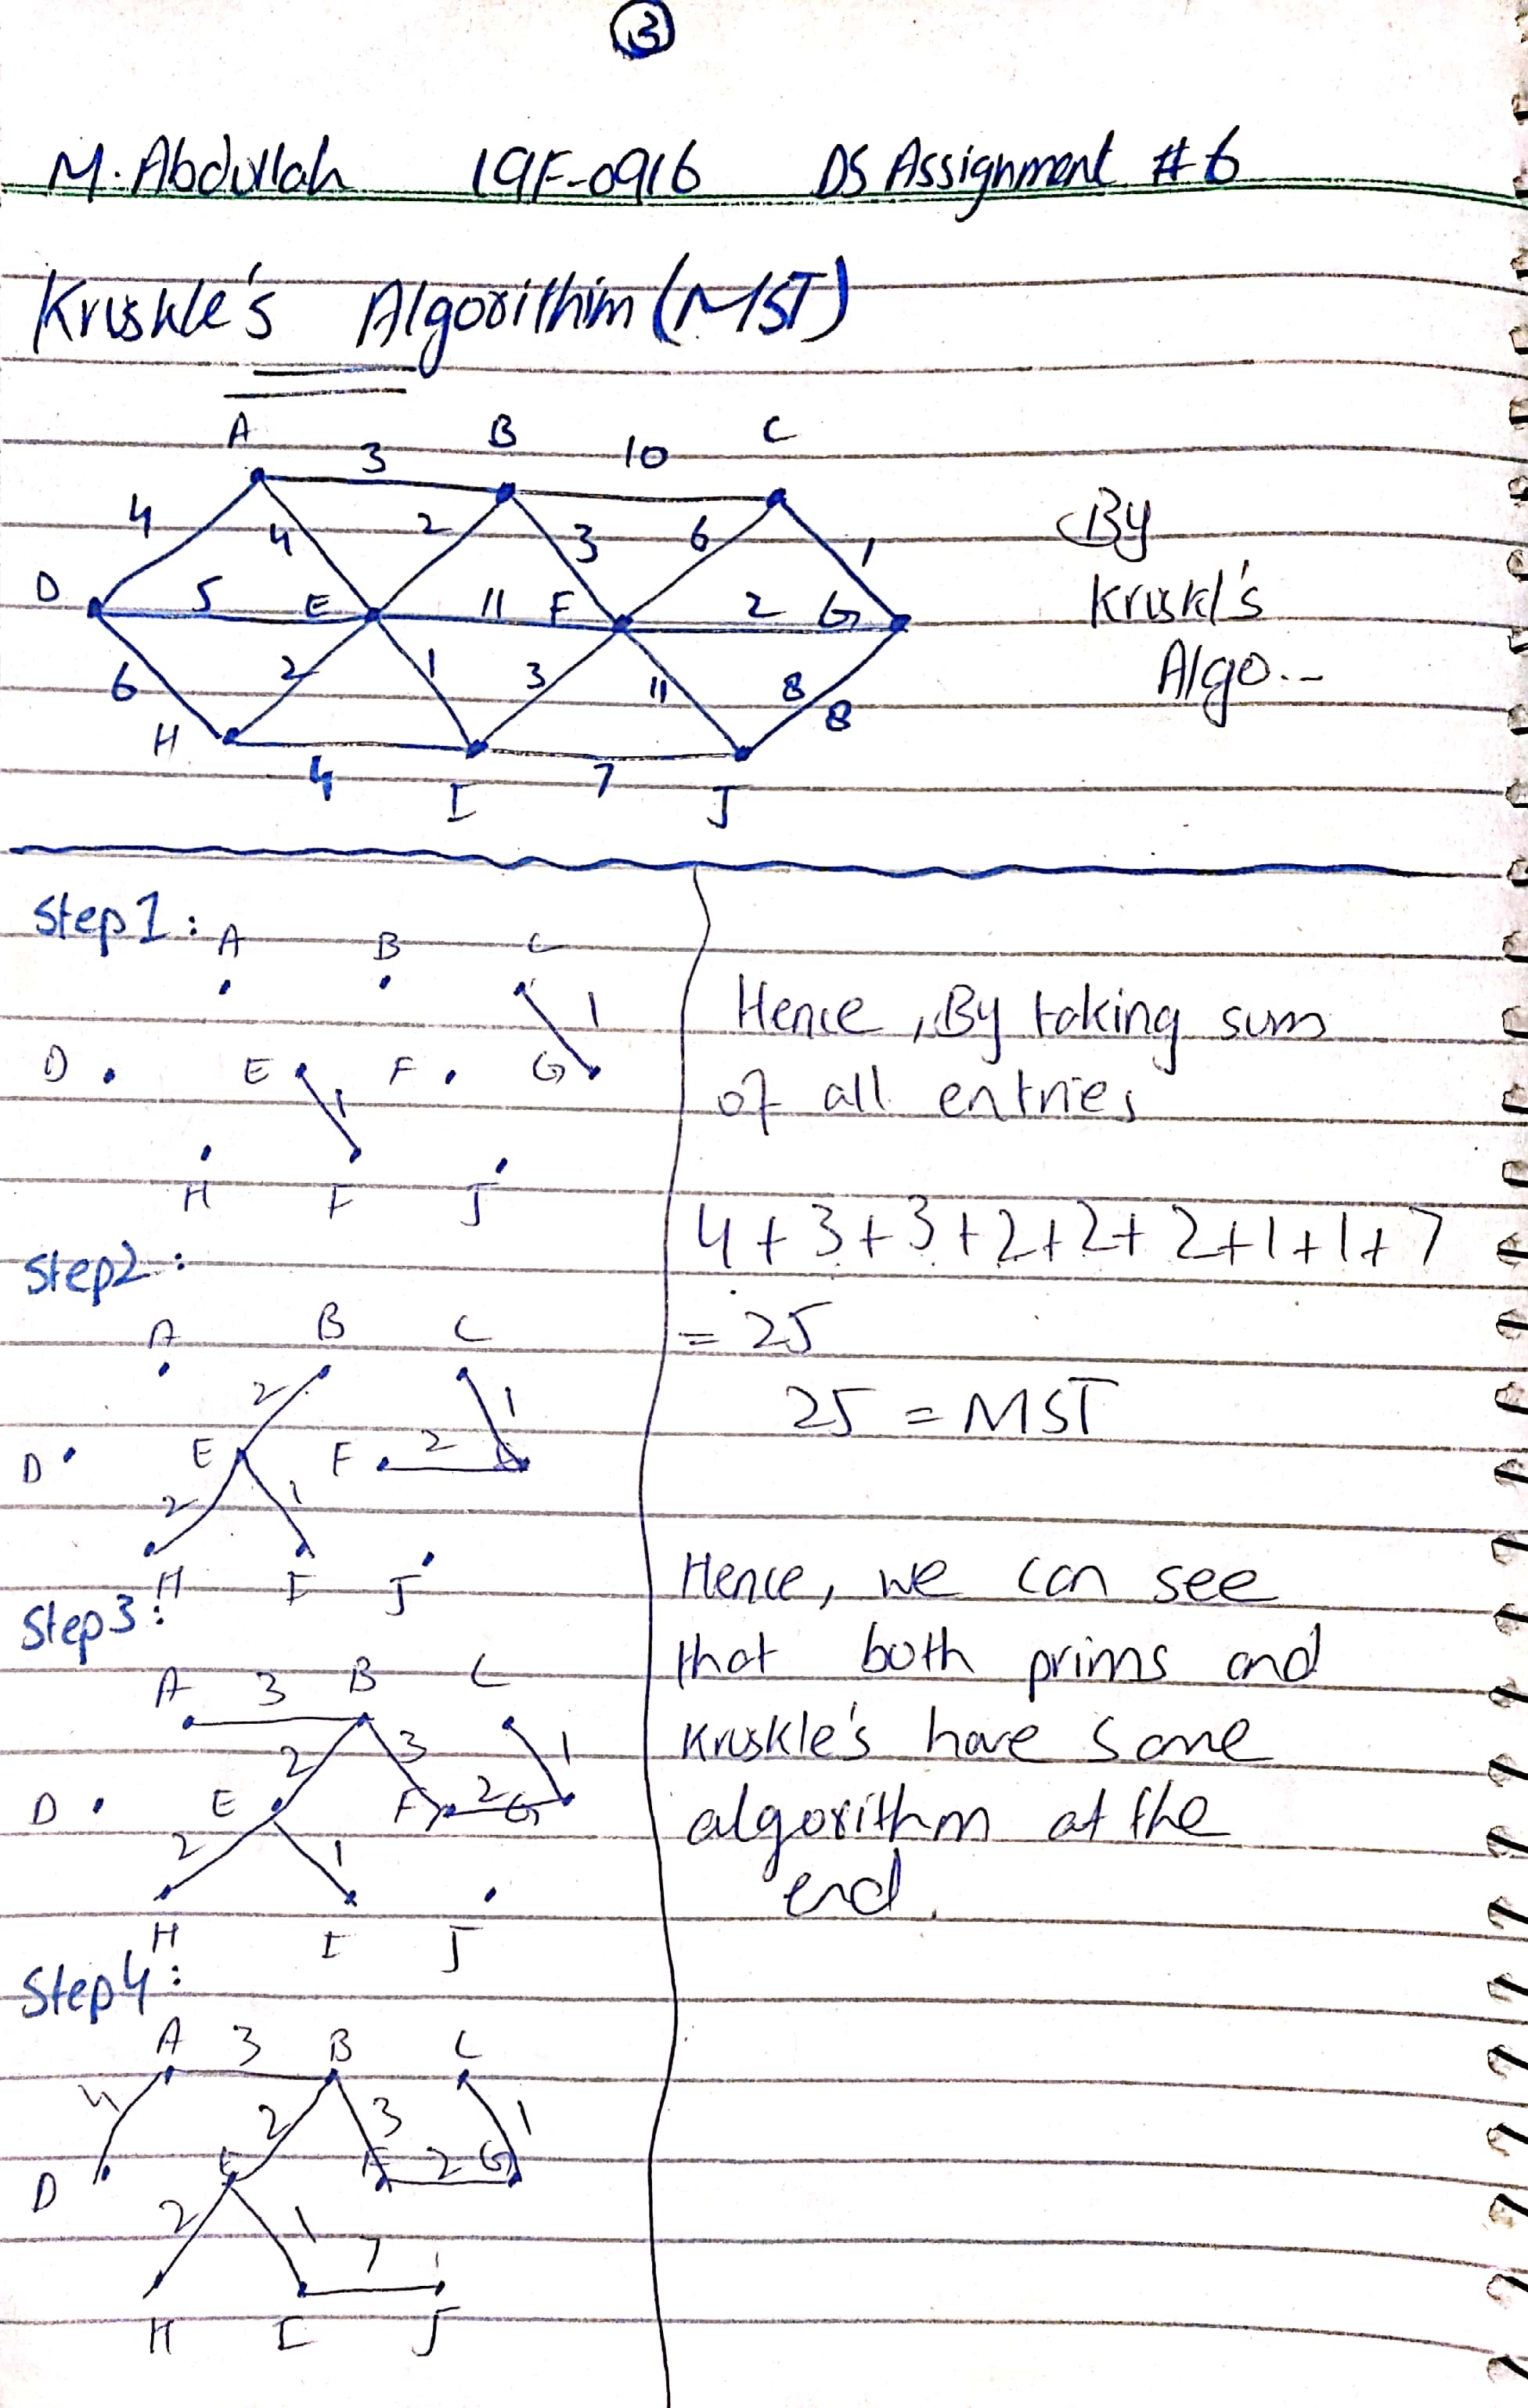 3
M. Abdullah 19F-0916 DS Assignment #6
Kruskle's Algorithim (MST)
A B C
3 10
4 4 2 3 6 1
D 5 E 11 F 2 G
6 2 1 3 11 8
8
H 4 I 7 J
By
Kruskl's
Algo..
Step 1:
A B C
1
D E F G
1
H F J
Step2:
A B C
2 1
D E F 2 G
2 1
H I J
Step3:
A 3 B C
2 3 1
D E F 2 G
2 1
H I J
Step4:
A 3 B C
4 2 3 1
D E F 2 G
2 1 7
H I J
Hence, By taking sum
of all entries
4+3+3+2+2+2+1+1+7
= 25
25 = MST
Hence, we can see
that both prims and
Kruskle's have same
algorithm at the
end.